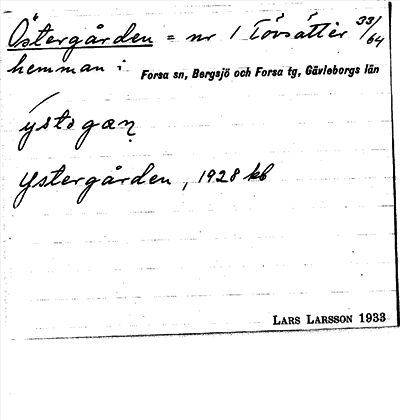 Östergården = nr 1 Tövsätter 33/64
hemman i Forsa sn, Bergsjö och Forsa tg, Gävleborgs län
ýstəgæṇ
Ystergården, 1928 kb
LARS LARSSON 1933